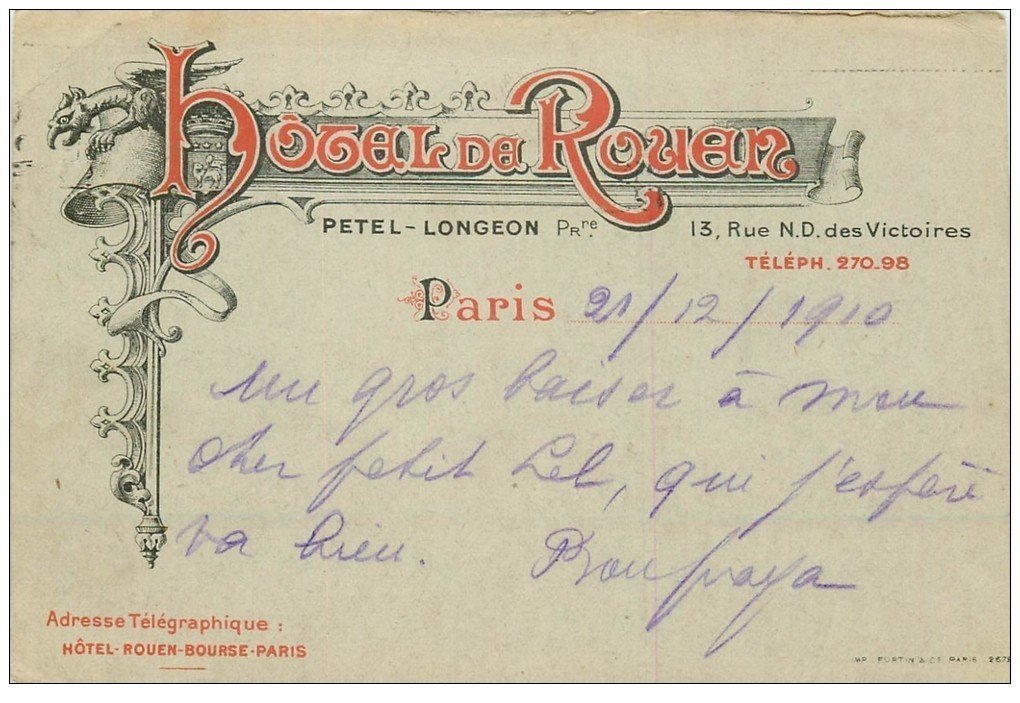 HÔTEL DE ROUEN
PETEL-LONGEON PRre. 13, Rue N.D. des Victoires
TÉLÉPH. 270-98
Paris 21/12/1910
un gros baiser à mon
cher petit Lel, qui j'espère
va bien.
Adresse Télégraphique :
HÔTEL-ROUEN-BOURSE-PARIS
IMP. FORTIN & Cie PARIS